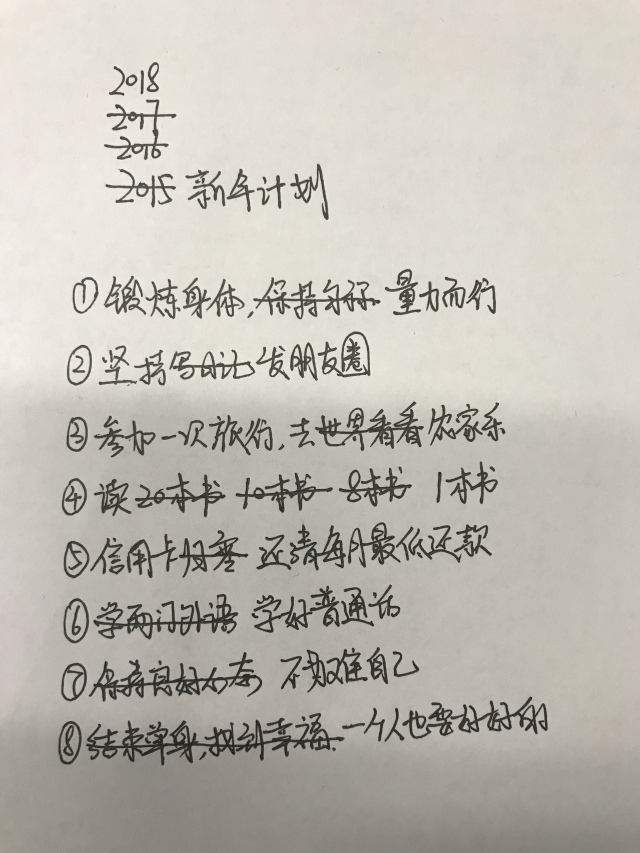 2018
2017
2016
2015 新年计划
① 锻炼身体,保持匀称. 量力而行
② 坚持写日记 发朋友圈
③ 参加一次旅行,去世界看看 农家乐
④ 读20本书 10本书 8本书 1本书
⑤ 信用卡归零 还清每月最低还款
⑥ 学两门外语 学好普通话
⑦ 保持良好心态 不难住自己
⑧ 结束单身,找到幸福. 一个人也要好好的